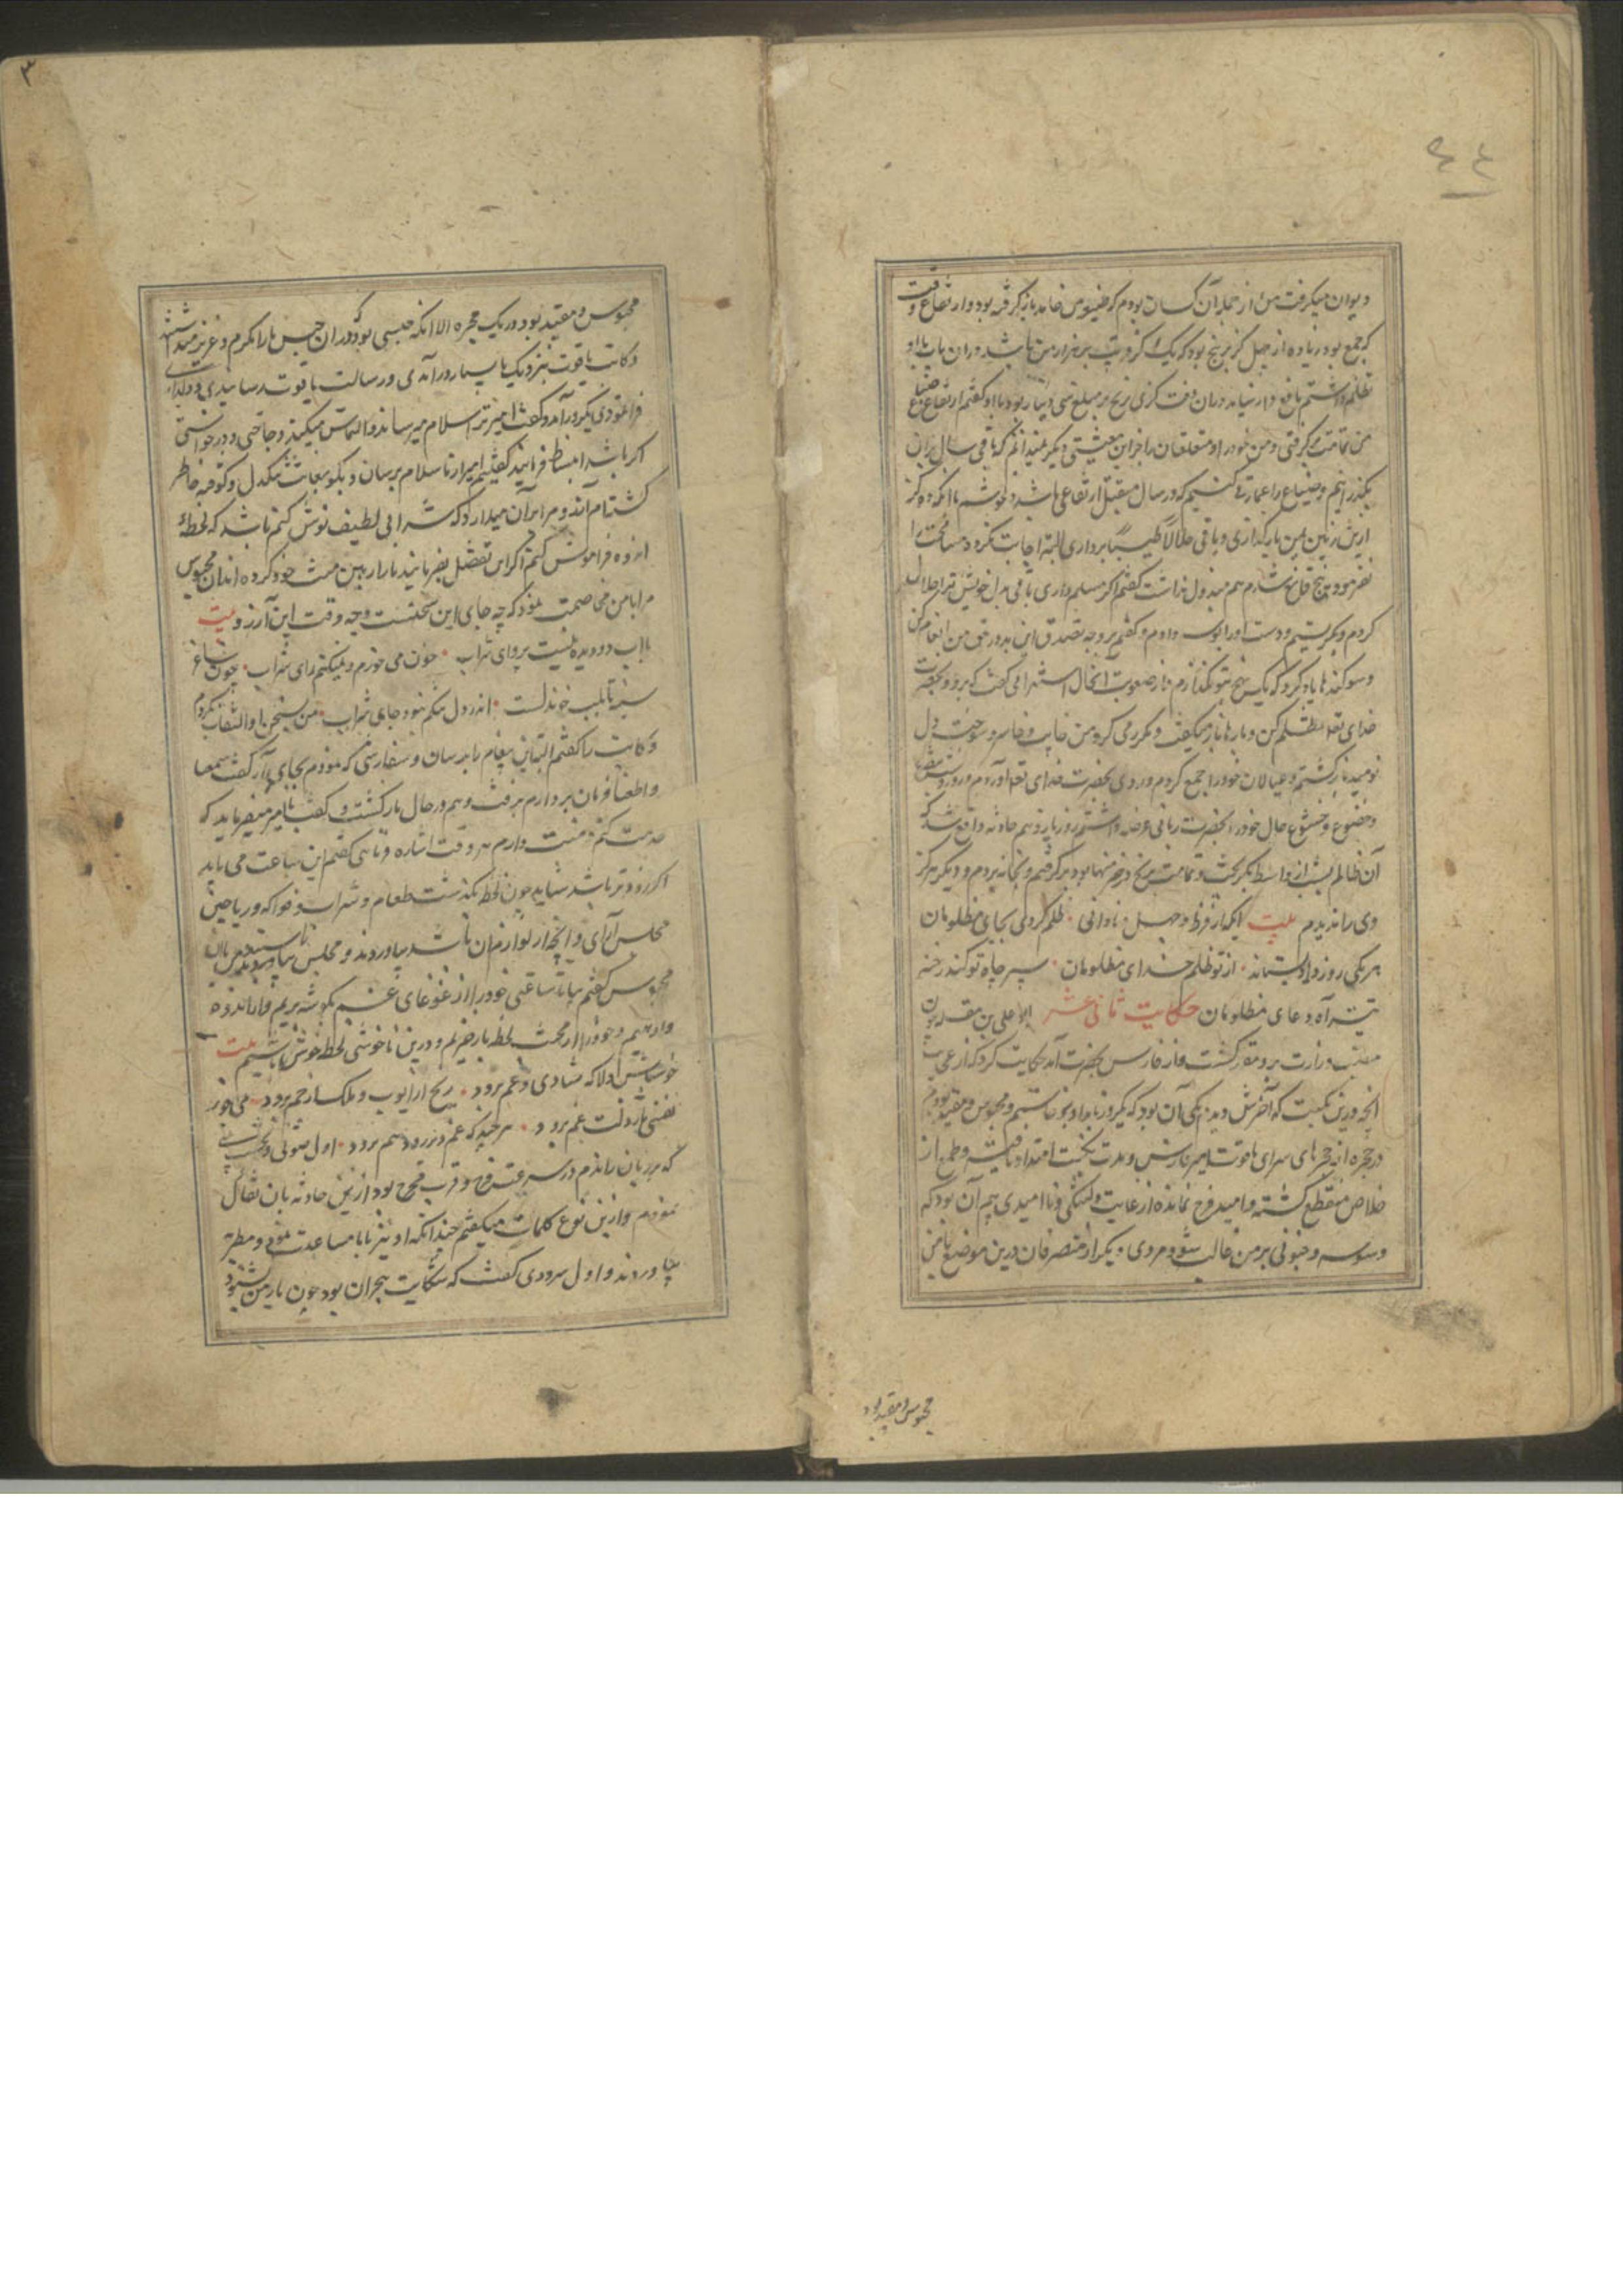 دیوان میکرفت من از جمله آن کسان بودم که ضیعه من حامد باز کرفته بود و ارتفاع وقت
که جمع بود زیاده از چهل کر برنج بود که یک کر وی به هزار من باشد در آن باب با او
تظلم داشتم نافع و ار نیامد در آن وقت کری برنج بر مبلغ سی دینار بود با او کفتم ارتفاع ضیاع
من تمامت برکرفتی و من خود را و متعلقان را جز این معیشتی دیگر نمیدانم که باقی سال بدان
بکذرانم و ضیاع را عمارت کنیم که در سال مستقبل ارتفاعی باشد و خوشم با انکه ده کر
ازین برنج بمن بازکذاری و باقی حلالا طیبا برداری البته اجابت نکرد و مسامحت را
بفرمود پنج قانع شدم هم مبذول نداشت کفتم اکر مسلم داری باقی بدل خویش ترا حلال
کردم و بکریستم و دست او را بوسه دادم و کفتم بر وجه تصدق این بدو حق من انعام کن
و سوکندها یاد کرد که یک برنج بتو نکذارم و از صعوبت آنحال استهزائی کفت که برو و بحضرت
خدای تعالی تظلم کن و بارها باز میکفت و مکرر می کرد من خایب و خاسر و سوخته دل
نومید بازکشتم و عیالان خود را جمع کردم و روی بحضرت خدای تعالی آوردم و روز و شب بتضرع
و خضوع و خشوع حال خود را بحضرت ربانی عرضه داشتم روز یازدهم حادثه واقع شد که
آن ظالم بیش از واسط بکریخت و تمامت برنج در خرمنها بود برکرفتم و بخانه بردم و دیگر هرکز
وی را ندیدم بیت ایکه از فرط و جهل و نادانی ٠ ظلم کردی بجای مظلومان
هر یکی روز داد بستاند ٠ از تو ظلم خدای مظلومان ٠ سپر جاه تو کند رخنه
تیر آه و دعای مظلومان حکایت ثانی عشر ابو علی بن مقله چون
منصب وزارت برو مقرر کشت و از فارس بحضرت آمد حکایت کرد که از عجایب
انچه درین نکبت که آخرش دیدم یکی آن بود که یکروز بامداد برخاستیم و محبوس و مقید بودم
در حجره از حجرهای سرای یاقوت امیر فارس و مدت نکبت امتداد یافته و طمع از
خلاص منقطع کشته و امید فرج نمانده از غایت دلتنکی و ناامیدی بیم آن بود که
وسوسه و جنونی بر من غالب شود و مردی دیگر از متصرفان درین موضع با من
محبوس و مقید بود
محبوس و مقید بود در یک حجره الا انکه حبسی بود که در ان حبس ما را مکرم و عزیز میداشتند
و کاتب یاقوت بنزدیک ما بسیار درآمدی و رسالت یاقوت رسانیدی
فراغ روزی دیگر درآمد و کفت امیر ترا سلام میرساند و التماس میکند و حاجتی و درخواستی
اکر باشد انبساط فرمائید کفتم امیر را سلام برسان و بکو بغایت تنکدل و کوفته خاطر
کشته‌ام اندوه مرا بر آن میدارد که شرابی لطیف نوش کنم باشد که لحظه
اندوه فراموش کنم اکر این تفضل بفرمایند ما را رهین منت خود کرده اند ان محبوس
مرا با من می خصمت نمود که چه جای این سخنست و چه وقت این آرزو بیت
با آب دو دیده نیست پروای شراب ٠ خون می خورم و نمیکنم رای شراب ٠ چون ساغر
سینه تا بلب خوندلست ٠ اندر دل تنکم نبود جای شراب ٠ من بسخن او التفات نکردم
و کاتب را کفتم البته این پیغام ما برسان و سفارشی که نمودم بجای آر کفت سمعا
و اطعنا فرمان بردارم برفت و هم در حال بازکشت و کفت امیر میفرماید که
خدمت کنم و منت دارم هر وقت اشاره فرمائی کفتم این ساعت می باید
اکر زودتر باشد شاید چون لحظه بکذشت طعام و شراب و فواکه و ریاحین
مجلس آرای و آنچه از لوازم ان باشد بیاوردند و مجلس بیاراستند با ان
محبوس کفتم بیا تا ساعتی خود را از غوغای غم بکوشه بریم و از اندوه
واردهیم و خود را از محنت لحظه باز خریم و درین ناخوشی لحظه خوش باشیم بیت
خوش باش دلا که شادی و غم برود ٠ رنج از ایوب و ملک از جم برود ٠ می خور
نفسی ز دلت غم برود ٠ هر چند که غم دیر رود هم برود ٠ اول صوتی
که بر زبان راندم در سرعت فرج و قرب فرح بود ازین حادثه بان تفال
نمودم و ازین نوع کلمات میکفتم چندانکه او نیز با ما مساعدت نمود و مطربه
بیاوردند و اول سرودی کفت که شکایت هجران بود چون یار من بشنود